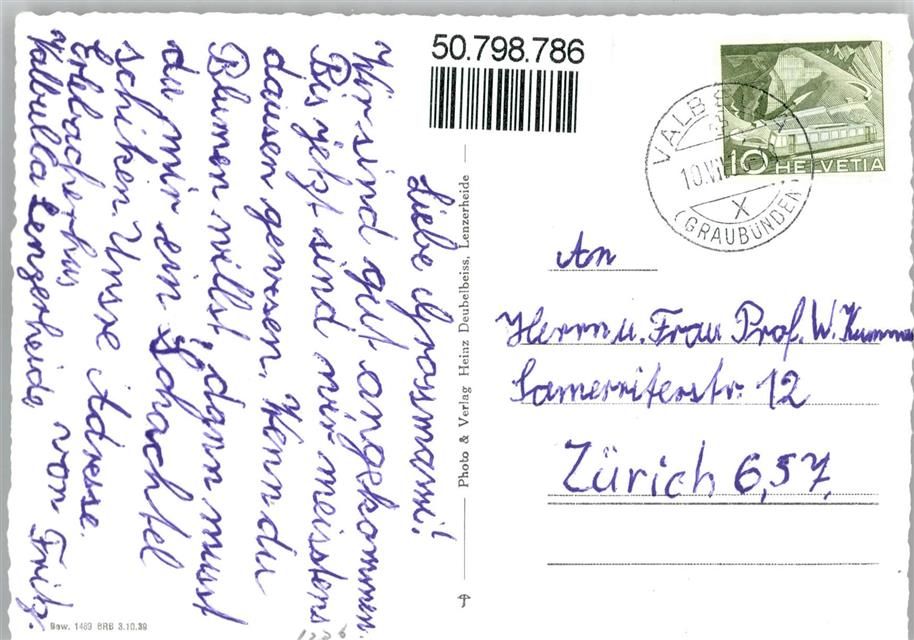 50.798.786
HELVETIA
10
VALBELLA
10.VII
X
(GRAUBÜNDEN)
Liebe Grossmami!
Wir sind gut angekommen.
Bis jetzt sind wir meistens
dausen gewesen. Wenn du
Blumen willst, dann musst
du mir ein Schachtel
schiken. Unsre Adresse.
Erlebacherhus
Valbulla Lenzerheide von Fritz.
Photo & Verlag Heinz Deubelbeiss, Lenzerheide
An
Herrn u. Frau Prof. W. Kummer
Samerriterstr. 12
Zürich 6,57,
Bew. 1483 BRB 3.10.39